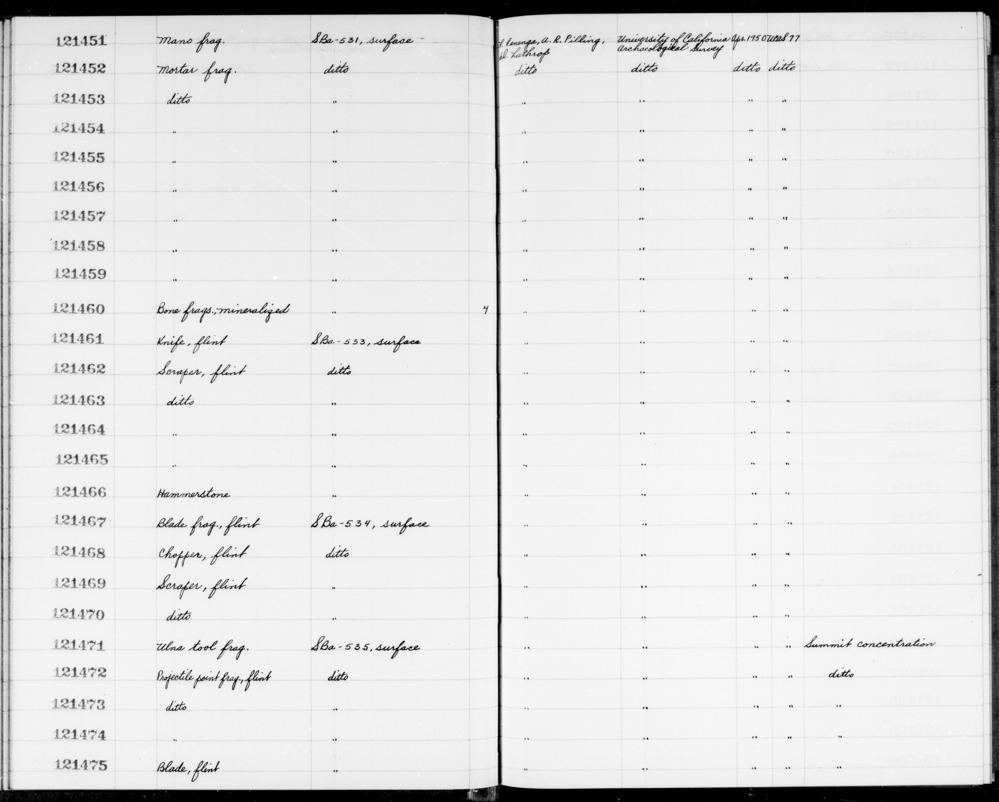 121451 Mano frag. SBa-531, surface A. R. Pilling, University of California Apr. 1950 UCAS 77
Lathrop Archaeological Survey
121452 Mortar frag. ditto ditto ditto ditto ditto
121453 ditto " " " " "
121454 " " " " " "
121455 " " " " " "
121456 " " " " " "
121457 " " " " " "
121458 " " " " " "
121459 " " " " " "
121460 Bone frags.; mineralized " 4 " " " "
121461 Knife, flint SBa-533, surface " " " "
121462 Scraper, flint ditto " " " "
121463 ditto " " " " "
121464 " " " " " "
121465 " " " " " "
121466 Hammerstone " " " " "
121467 Blade frag., flint SBa-534, surface " " " "
121468 Chopper, flint ditto " " " "
121469 Scraper, flint " " " " "
121470 ditto " " " " "
121471 Ulna tool frag. SBa-535, surface " " " " Summit concentration
121472 Projectile point frag., flint ditto " " " " ditto
121473 ditto " " " " " "
121474 " " " " " " "
121475 Blade, flint " " " " " "